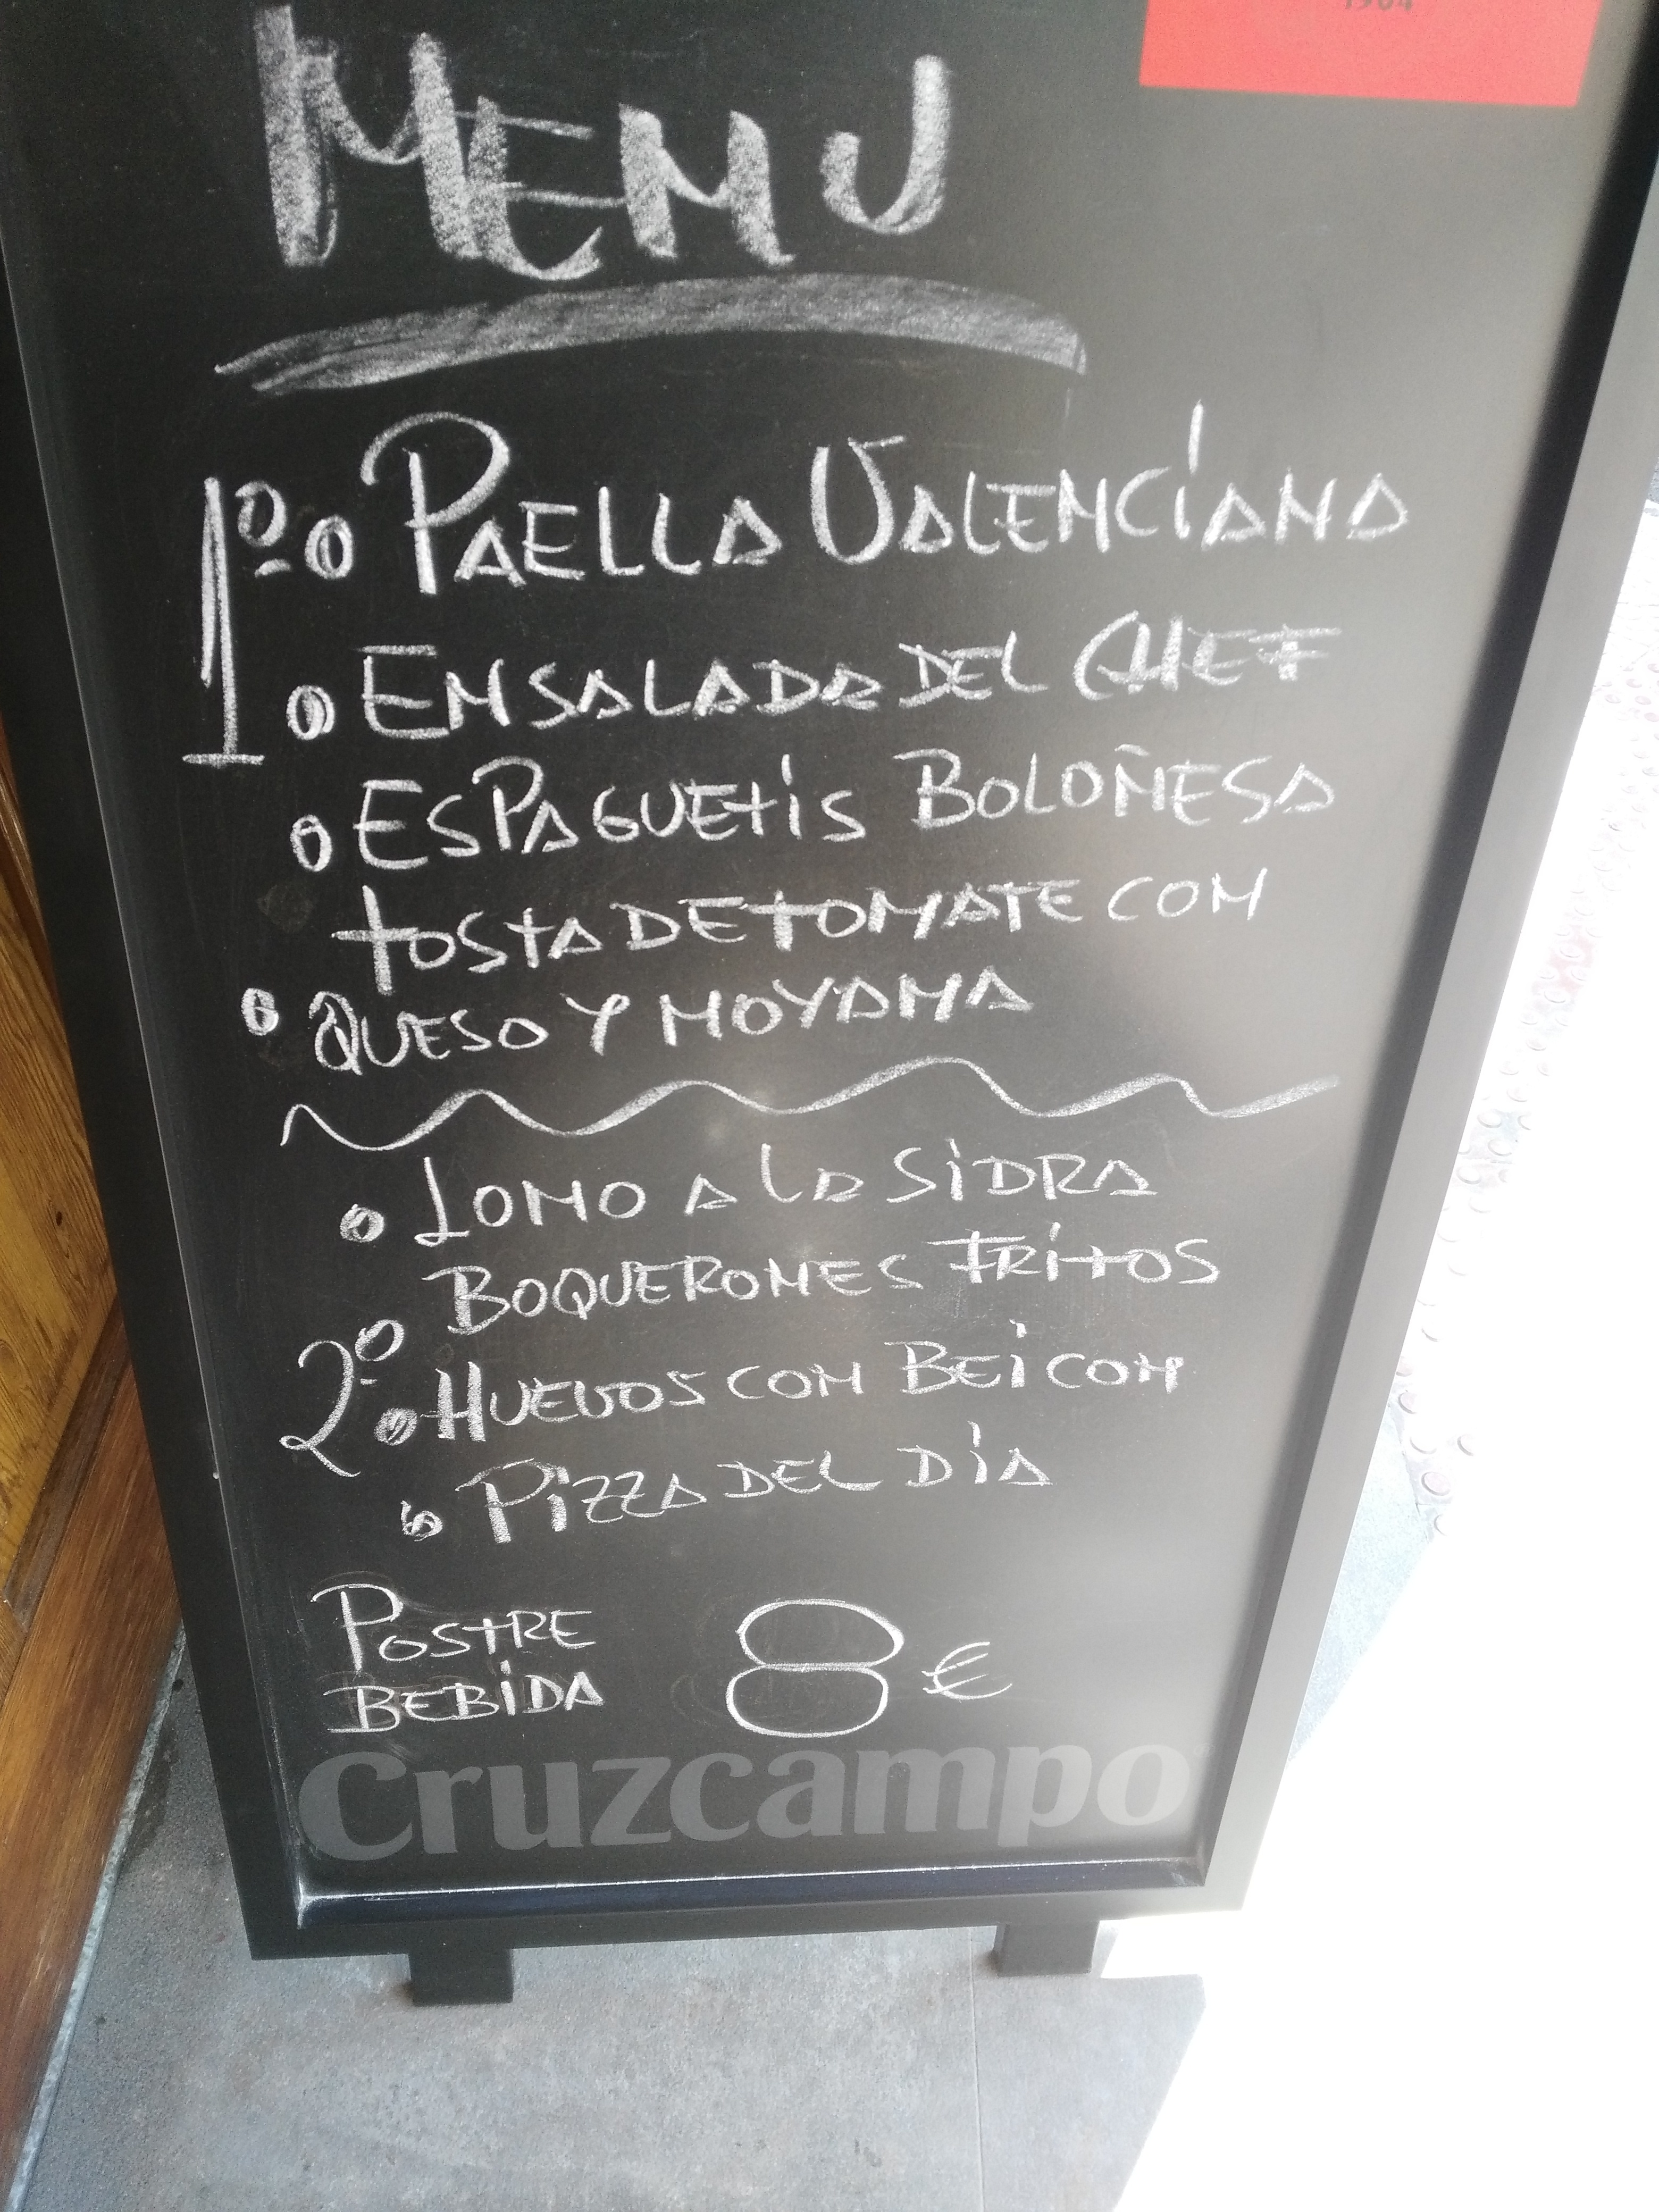 1904
MENU
1º o PAELLA VALENCIANA
o ENSALADA DEL CHEF
o ESPAGUETIS BOLOÑESA
TOSTA DE TOMATE CON
o QUESO Y MOYAMA
o LOMO A LA SIDRA
BOQUERONES FRITOS
2º o HUEVOS CON BEICON
o PIZZA DEL DÍA
POSTRE
BEBIDA 8 €
Cruzcampo